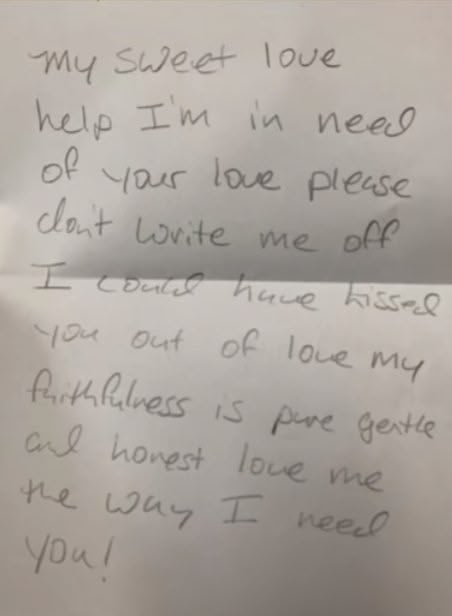 my sweet love
help I'm in need
of your love please
don't write me off
I could have kissed
you out of love my
faithfulness is pure gentle
and honest love me
the way I need
you!